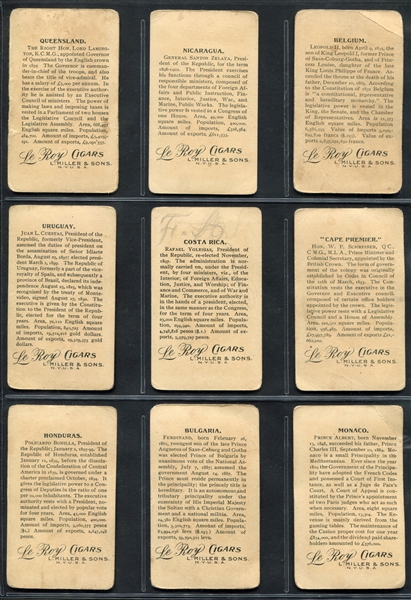 QUEENSLAND.
THE RIGHT HON. LORD LAMING-
TON, K.C.M.G., appointed Governor
of Queensland by the English crown
in 1895. The Governor is comman-
der-in-chief of the troops, and also
bears the title of vice-admiral. He
has a salary of £5,000 per annum. In
the exercise of the executive author-
ity he is assisted by an Executive
Council of ministers. The power of
making laws and imposing taxes is
vested in a Parliament of two houses
the Legislative Council and the
Legislative Assembly. Area,
English square miles. Population,
Amount of imports,
Amount of exports,
Le Roy CIGARS
L. MILLER & SONS.
N.Y.U.S.A.
NICARAGUA.
GENERAL SANTOS ZELAYA, Presi-
dent of the Republic, for the term
1898-1902. The President exercises
his functions through a council of
responsible ministers, composed of
the four departments of Foreign Affairs
and Public Instruction, Fin-
ance, Interior, Justice, War, and
Marine, Public Works. The legisla-
tive power is vested in a Congress of
one House. Area, 49,000 English
square miles. Population,
Amount of imports,
Amount of exports,
Le Roy CIGARS
L. MILLER & SONS.
N.Y.U.S.A.
BELGIUM.
LEOPOLD II, born April 9, 1835, the
son of King Leopold I, former Prince
of Saxe-Coburg-Gotha, and of Prin-
cess Louise, daughter of the late
King Louis Philippe of France. As-
cended the throne at the death of his
father, December 10, 1865. According
to the Constitution of 1831 Belgium
is a constitutional, representative
and hereditary monarchy. The
legislative power is vested in the
King, the Senate, and the Chamber
of Representatives. Area is
English square miles. Population,
Value of imports
francs Value of ex-
ports francs
Le Roy CIGARS
L. MILLER & SONS.
N.Y.U.S.A.
URUGUAY.
JUAN L. CUESTAS, President of the
Republic, formerly Vice-President,
assumed the duties of president on
the assassination of Señor Idiarte
Borda, August 25, 1897; elected presi-
dent March 1, 1899. The Republic of
Uruguay, formerly a part of the vice-
royalty of Spain, and subsequently a
province of Brazil, declared its inde-
pendence August 25, 1825, which was
recognized by the treaty of Monte-
video, signed August 27, 1828. The
executive is given by the Constitu-
tion to the President of the Repub-
lic, elected for the term of four
years. Area, English square
miles. Population, Amount
of imports, gold dollars.
Amount of exports, gold
dollars.
Le Roy CIGARS
L. MILLER & SONS.
N.Y.U.S.A.
COSTA RICA.
RAFAEL YGLESIAS, President of
the Republic, re-elected November,
1897. The administration is nor-
mally carried on, under the Presi-
dent, by four ministers, viz., of the
Interior; of Foreign Affairs, Educa-
tion, Justice, and Worship; of Fin-
ance and Commerce, and of War and
Marine. The executive authority is
in the hands of a president, elected,
in the same manner as the Congress,
for the term of four years. Area,
English square miles. Popula-
tion, Amount of imports,
pesos Amount of ex-
ports, pesos.
Le Roy CIGARS
L. MILLER & SONS.
N.Y.U.S.A.
"CAPE PREMIER."
HON. W. P. SCHREINER, Q.C.,
C.M.G., M.L.A., Prime Minister and
Colonial Secretary, appointed by the
British Crown. The form of govern-
ment of the colony was originally
established by Order in Council of
the 11th of March, 1853. The Con-
stitution vests the executive in the
Governor and Executive Council,
composed of certain office holders
appointed by the crown. The legis-
lative power rests with a Legislative
Council and a House of Assembly.
Area, English square miles.
Population, Amount of
imports,
Amount of
exports,
Le Roy CIGARS
L. MILLER & SONS.
N.Y.U.S.A.
HONDURAS.
POLICARPO BONILLA, President of
the Republic; January 1, 1895-99. The
Republic of Honduras, established
January 11, 1839, before the dissolu-
tion of the Confederation of Central
America in 1839, is governed under a
charter proclaimed October, 1894. It
gives the legislative power to a Con-
gress of Deputies in the ratio of one
per 10,000 inhabitants. The executive
authority rests with a President, no-
minated and elected by popular vote
for four years. Area, English
square miles. Population,
Amount of imports, pesos
Amount of exports,
pesos.
Le Roy CIGARS
L. MILLER & SONS.
N.Y.U.S.A.
BULGARIA.
FERDINAND, born February 26,
1861, youngest son of the late Prince
Augustus of Saxe-Coburg and Gotha
was elected Prince of Bulgaria by
unanimous vote of the National As-
sembly, July 7, 1887; assumed the
government August 14, 1887. The
Prince must reside permanently in
the principality; the princely title is
hereditary. It is an autonomous and
tributary principality under the
suzerainty of His Imperial Majesty
the Sultan with a Christian Govern-
ment and a national militia. Area,
English square miles. Popula-
tion, Amount of imports,
leva Amount of ex-
ports, leva.
Le Roy CIGARS
L. MILLER & SONS.
N.Y.U.S.A.
MONACO.
PRINCE ALBERT, born November
13, 1848, succeeded his father, Prince
Charles III, September 10, 1889. Mo-
naco is a small Principality in the
Mediterranean. Ever since the year
1819 the Government of the Principa-
lity have adopted the French Codes
and possess a Court of First Inst-
ance, as well as a Juge de Paix's
Court. A Court of Appeal is consti-
tuted by the Prince's appointment
of two Paris judges who act as such
when necessary. Area, eight square
miles. Population, The Re-
venue is mainly derived from the
gaming tables. The maintenance of
the Casino proper cost for one year
and the dividend paid share-
holders amounted to
Le Roy CIGARS
L. MILLER & SONS.
N.Y.U.S.A.